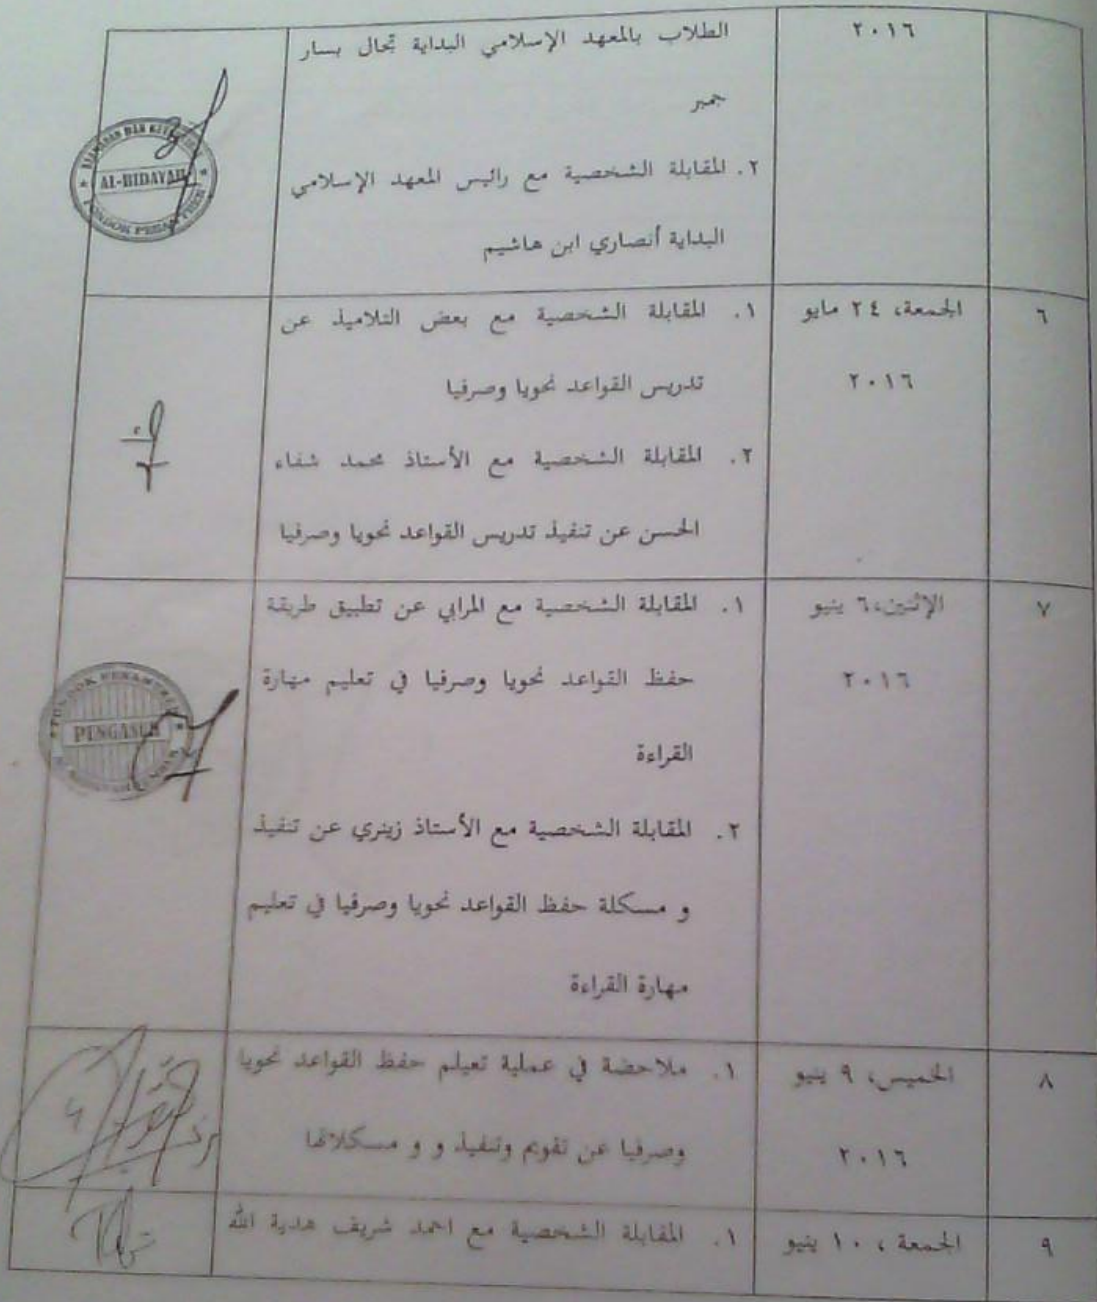 ٢٠١٦
الطلاب بالمعهد الإسلامي البداية تجال بسار
جمبر
٢. المقابلة الشخصية مع رائيس المعهد الإسلامي
البداية أنصاري ابن هاشيم
AL-BIDAYAH
٦
الجمعة، ٢٤ مايو
٢٠١٦
١. المقابلة الشخصية مع بعض التلاميذ عن
تدريس القواعد نحويا وصرفيا
٢. المقابلة الشخصية مع الأستاذ محمد شفاء
الحسن عن تنفيذ تدريس القواعد نحويا وصرفيا
٧
الإثنين،٦ ينيو
٢٠١٦
١. المقابلة الشخصية مع المرابي عن تطبيق طريقة
حفظ القواعد نحويا وصرفيا في تعليم مهارة
القراءة
٢. المقابلة الشخصية مع الأستاذ زينري عن تنفيذ
و مسكلة حفظ القواعد نحويا وصرفيا في تعليم
مهارة القراءة
PONDOK PESANTREN
PENGASUH
٨
الخميس، ٩ ينيو
٢٠١٦
١. ملاحضة في عملية تعيلم حفظ القواعد نحويا
وصرفيا عن تقويم وتنفيذ و و مسكلاتها
٩
الجمعة ، ١٠ ينيو
١. المقابلة الشخصية مع احمد شريف هدية الله